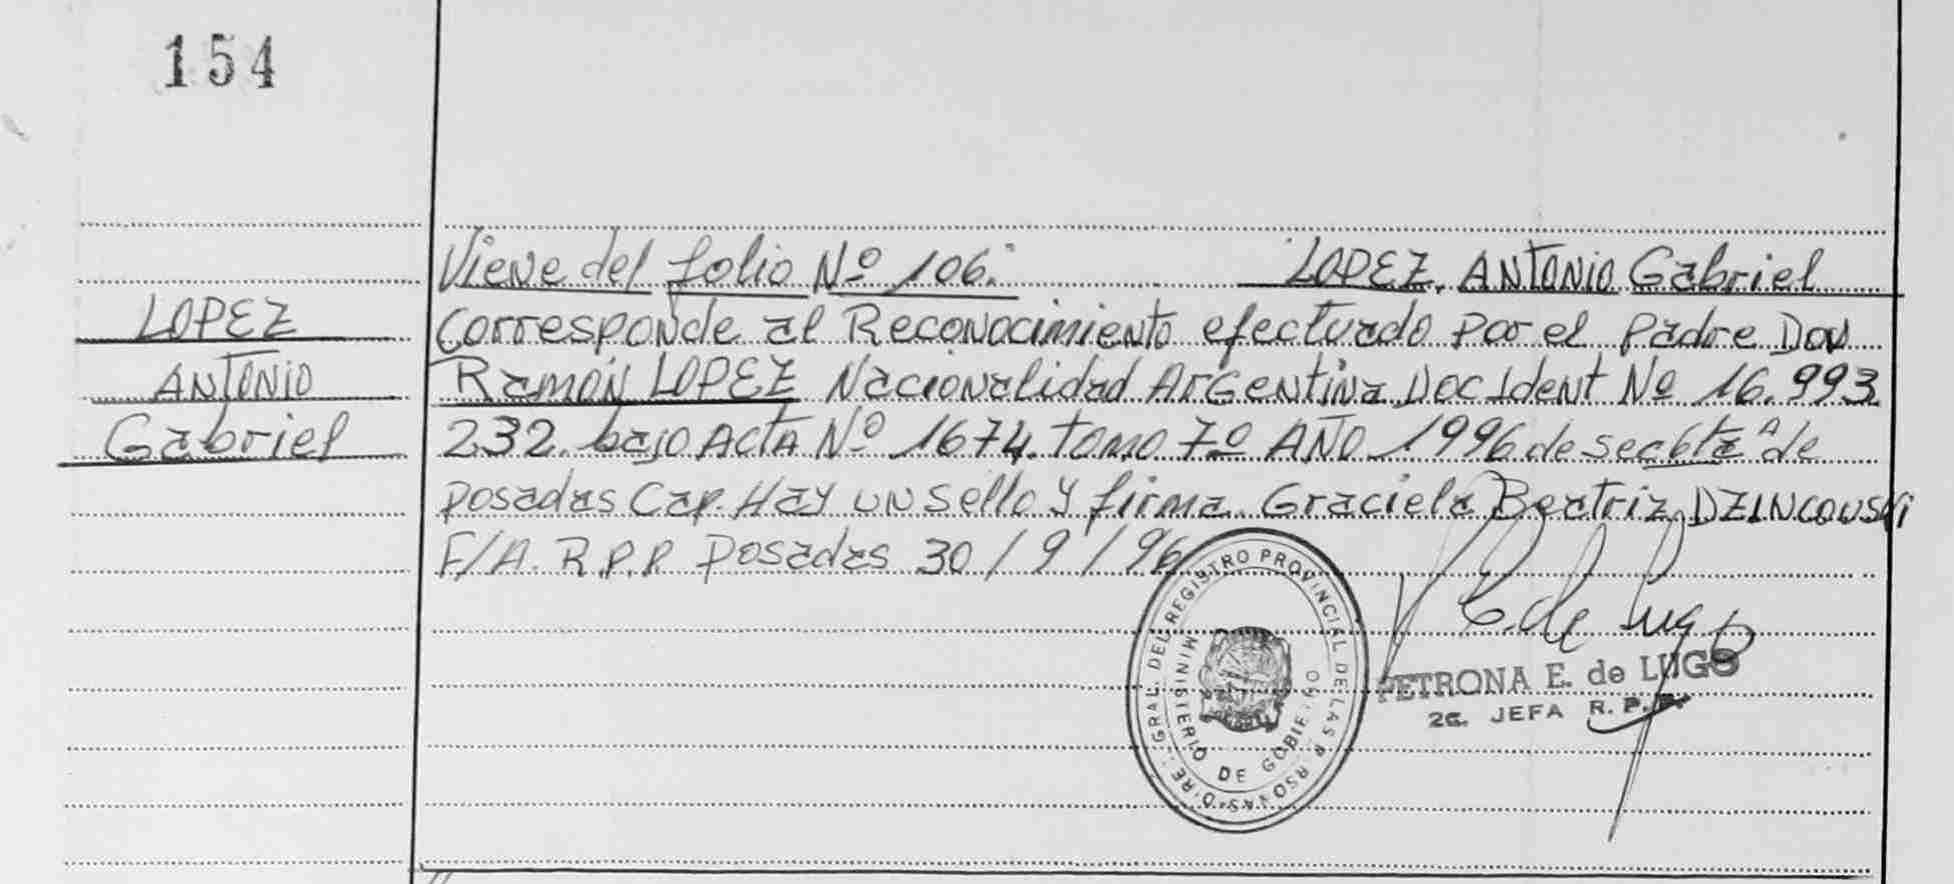 154
LOPEZ
ANTONIO
Gabriel
Viene del folio Nº 106. LOPEZ, ANTONIO Gabriel
Corresponde al Reconocimiento efectuado por el padre Don
Ramón LOPEZ Nacionalidad Argentina Doc Ident Nº 16.993
232. bajo ACTA Nº 1674. tomo 7º AÑO 1996 de sec 6ta A de
posadas Cap. Hay un sello y firma. Graciela Beatriz DZINCOUSKI
F/A. R.P.P. Posadas 30/9/96
DIRE. GRAL. DEL REGISTRO PROVINCIAL DE LAS P RSONAS
MINISTERIO DE GOBIERNO
E. de Lugo
PETRONA E. de LUGO
2a. JEFA R. P. P.